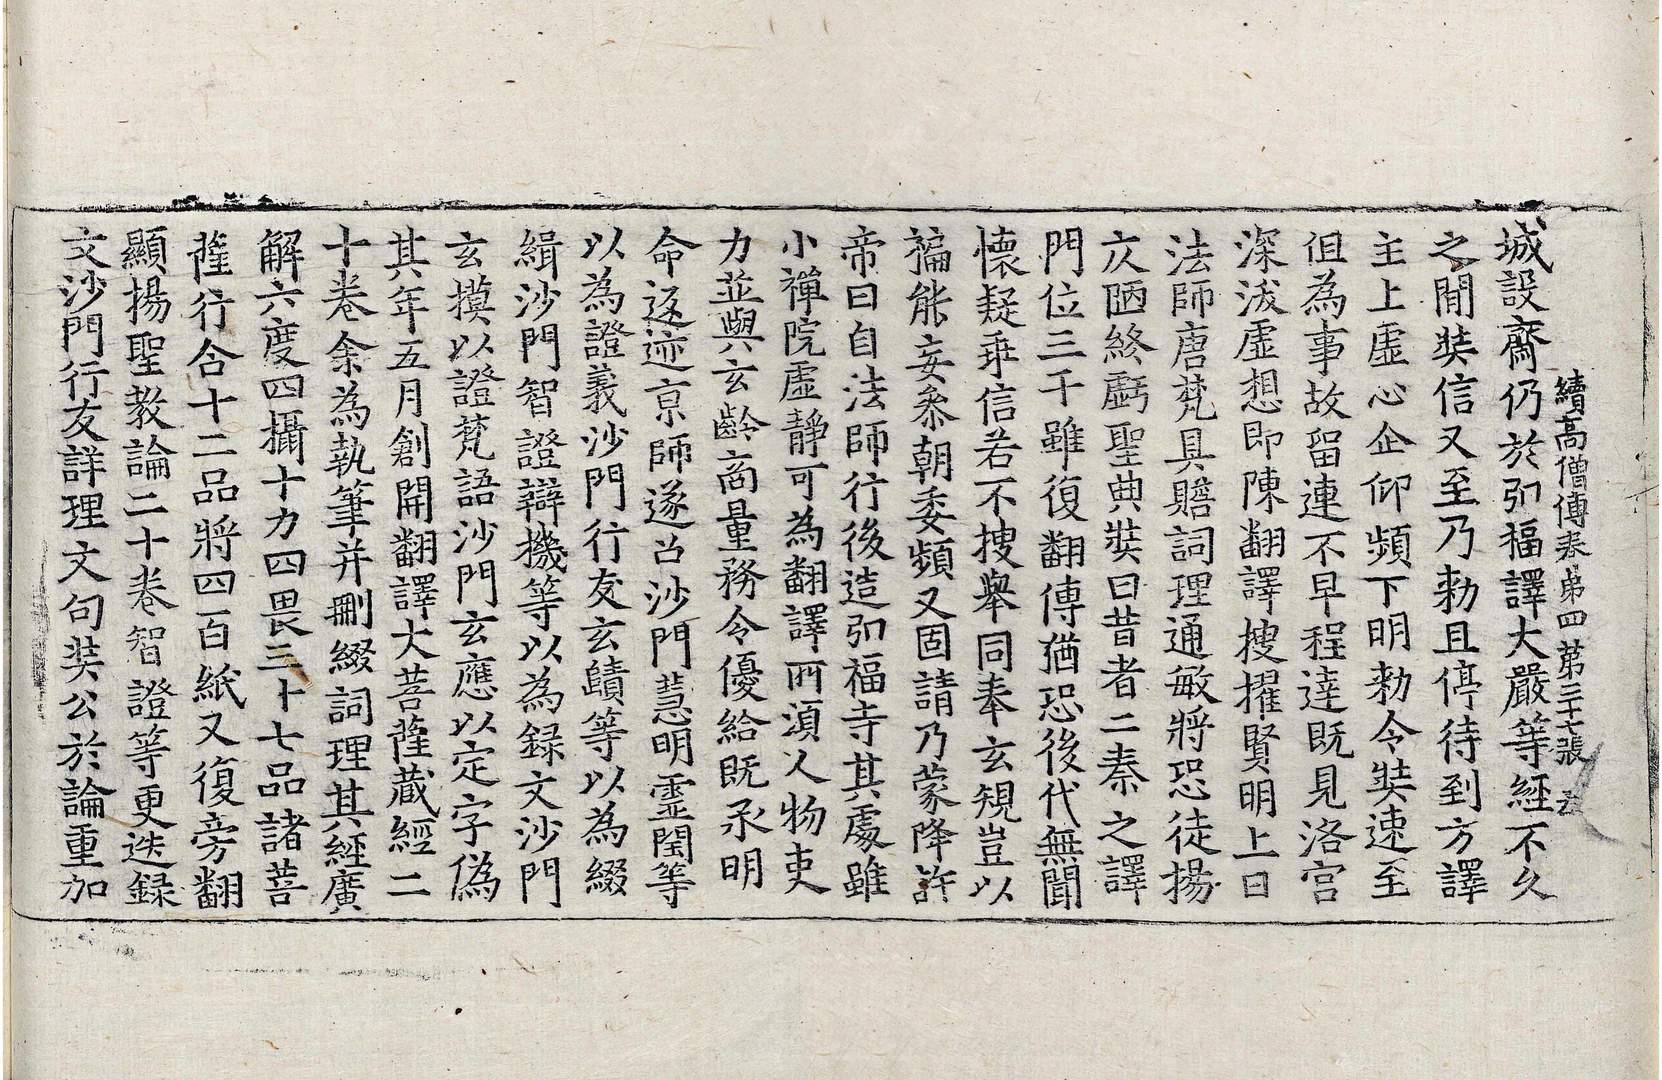 續高僧傳卷第四 第二十七張 云
城設齋仍於弘福譯大嚴等經不久
之間奘信又至乃勑且停待到方譯
主上虛心企仰頻下明勑令奘速至
但為事故留連不早程達既見洛宮
深沃虛想即陳翻譯搜擢賢明上曰
法師唐梵具贍詞理通敏將恐徒揚
仄陋終虧聖典奘曰昔者二秦之譯
門位三千雖復翻傳猶恐後代無聞
懷疑乖信若不搜舉同奉玄規豈以
褊能妄參朝委頻又固請乃蒙降許
帝曰自法師行後造弘福寺其處雖
小禪院虛靜可為翻譯所須人物吏
力並與玄齡商量務令優給既承明
命返迹京師遂召沙門慧明靈閏等
以為證義沙門行友玄賾等以為綴
緝沙門智證辯機等以為錄文沙門
玄摸以證梵語沙門玄應以定字偽
其年五月創開翻譯大菩薩藏經二
十卷余為執筆并刪綴詞理其經廣
解六度四攝十力四畏三十七品諸菩
薩行合十二品將四百紙又復旁翻
顯揚聖教論二十卷智證等更迭錄
文沙門行友詳理文句奘公於論重加